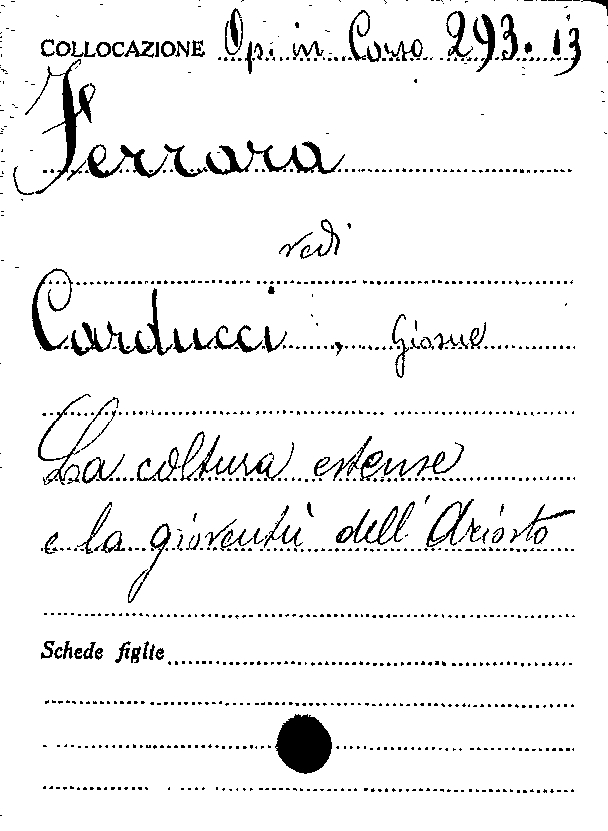 COLLOCAZIONE Op. in Corso 293.13
Ferrara
vedi
Carducci, Giosue
La coltura estense
e la gioventù dell'Ariosto
Schede figlie